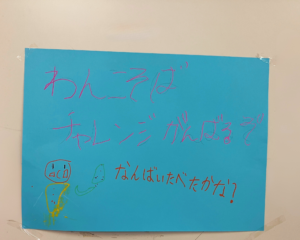 わんこそば
チャレンジがんばるぞ
なんばいたべたかな？